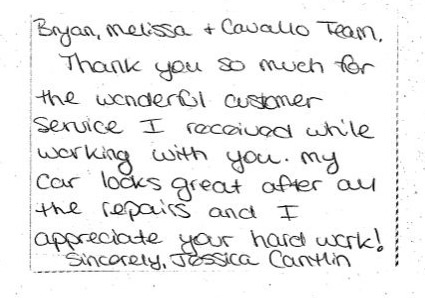 Bryan, Melissa + Cavallo Team,
Thank you so much for
the wonderful customer
service I received while
working with you. My
car looks great after all
the repairs and I
appreciate your hard work!
Sincerely, Jessica Cantlin